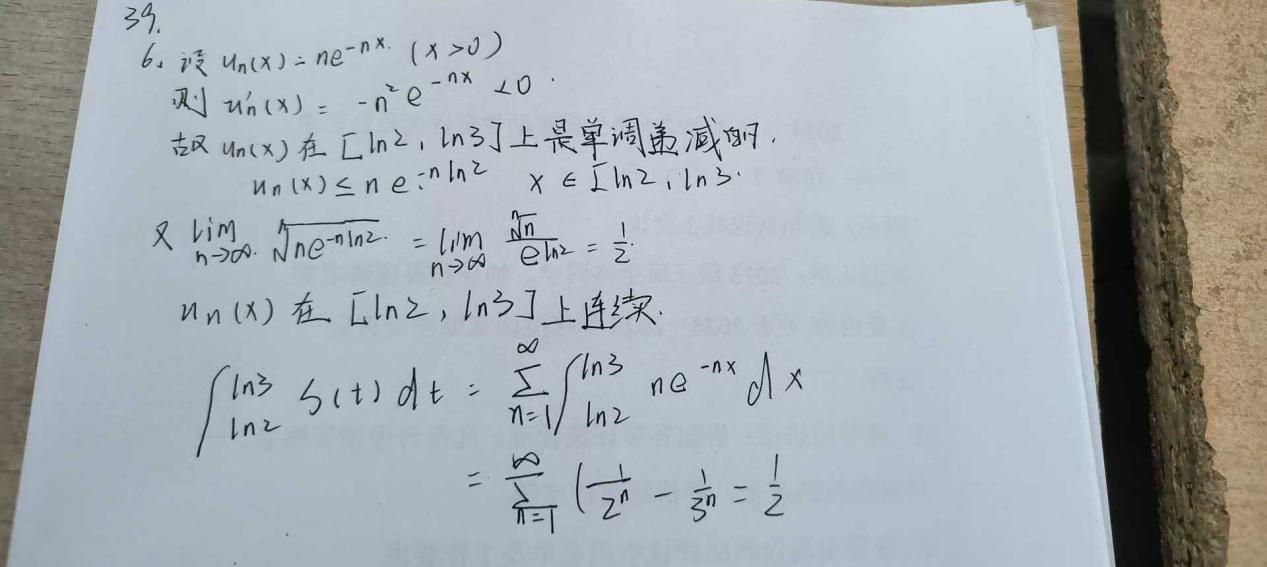 39.
6、设 uₙ(x) = ne^{-nx}. (x>0)
则 uₙ'(x) = -n²e^{-nx} <0.
故 uₙ(x) 在 [ln2, ln3] 上是单调递减的.
uₙ(x) ≤ ne^{-nln2} x ∈ [ln2, ln3.
又 lim_{n→∞} ⁿ√(ne^{-nln2}) = lim_{n→∞} ⁿ√n / e^{ln2} = 1/2.
uₙ(x) 在 [ln2, ln3] 上连续.
∫_{ln2}^{ln3} S(t) dt = ∑_{n=1}^{∞} ∫_{ln2}^{ln3} ne^{-nx} dx
= ∑_{n=1}^{∞} (1/2ⁿ - 1/3ⁿ = 1/2